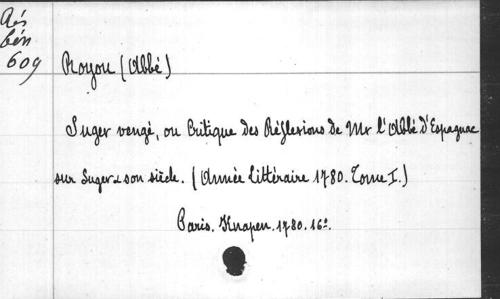 Rés
bén
609
Royou (Abbé)
Suger vengé, ou Critique des Réflexions de Mr l'Abbé d'Espagnac
sur Suger & son siècle. (Année littéraire 1780. Tome I.)
Paris. Knapen. 1780. 16º.